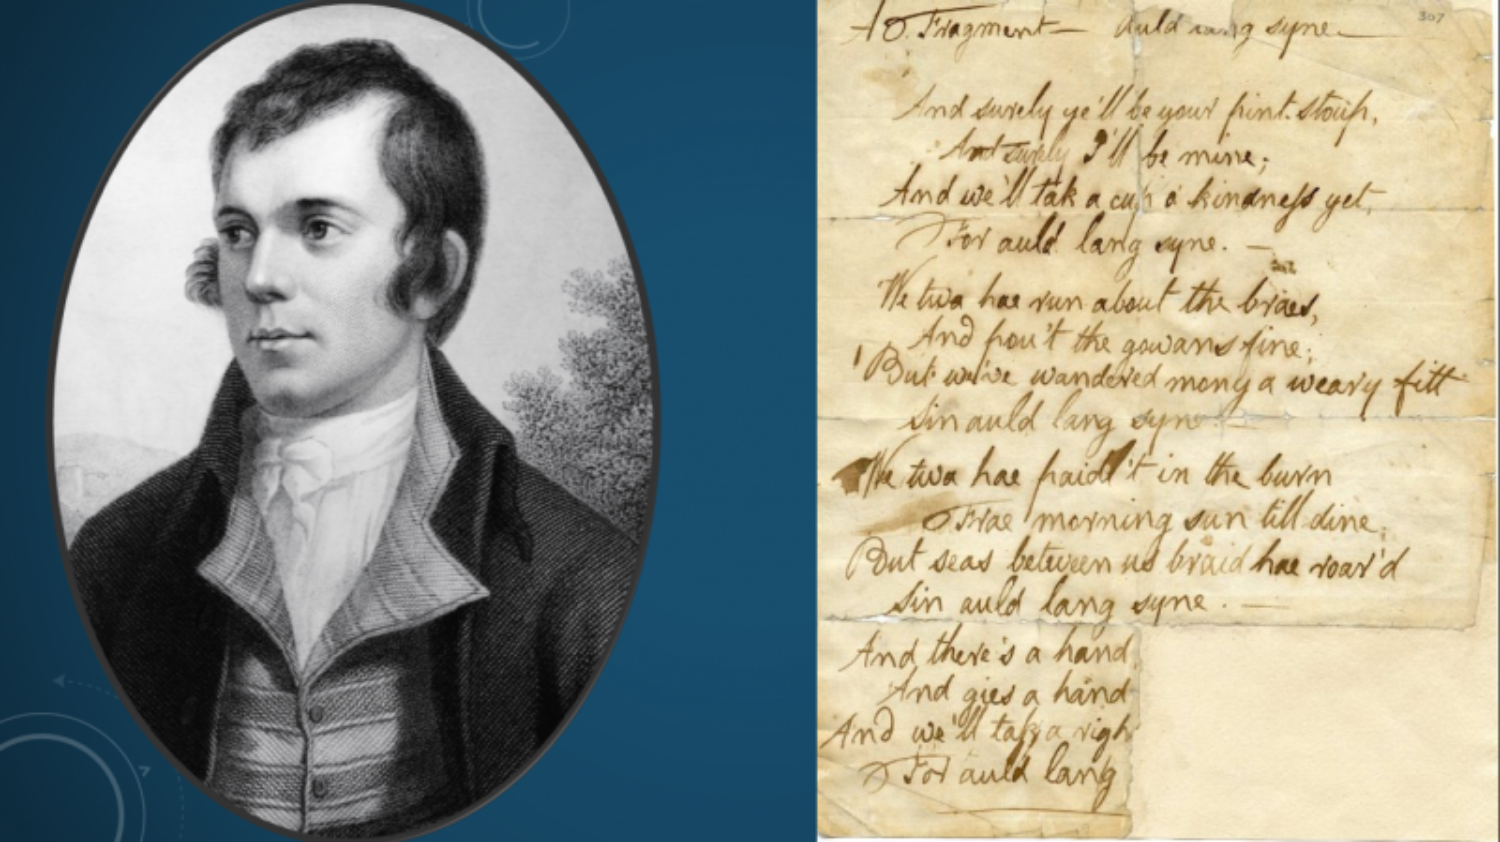 A Fragment — Auld lang syne —
307
And surely ye'll be your pint-stoup,
And surely I'll be mine;
And we'll tak a cup o' kindness yet,
For auld lang syne. —
We twa hae run about the braes,
And pou't the gowans fine;
But we've wandered mony a weary fitt
Sin auld lang syne —
We twa hae paidl't in the burn
Frae morning sun till dine;
But seas between us braid hae roar'd
Sin auld lang syne. —
And there's a hand
And gies a hand
And we'll tak a righ
For auld lang